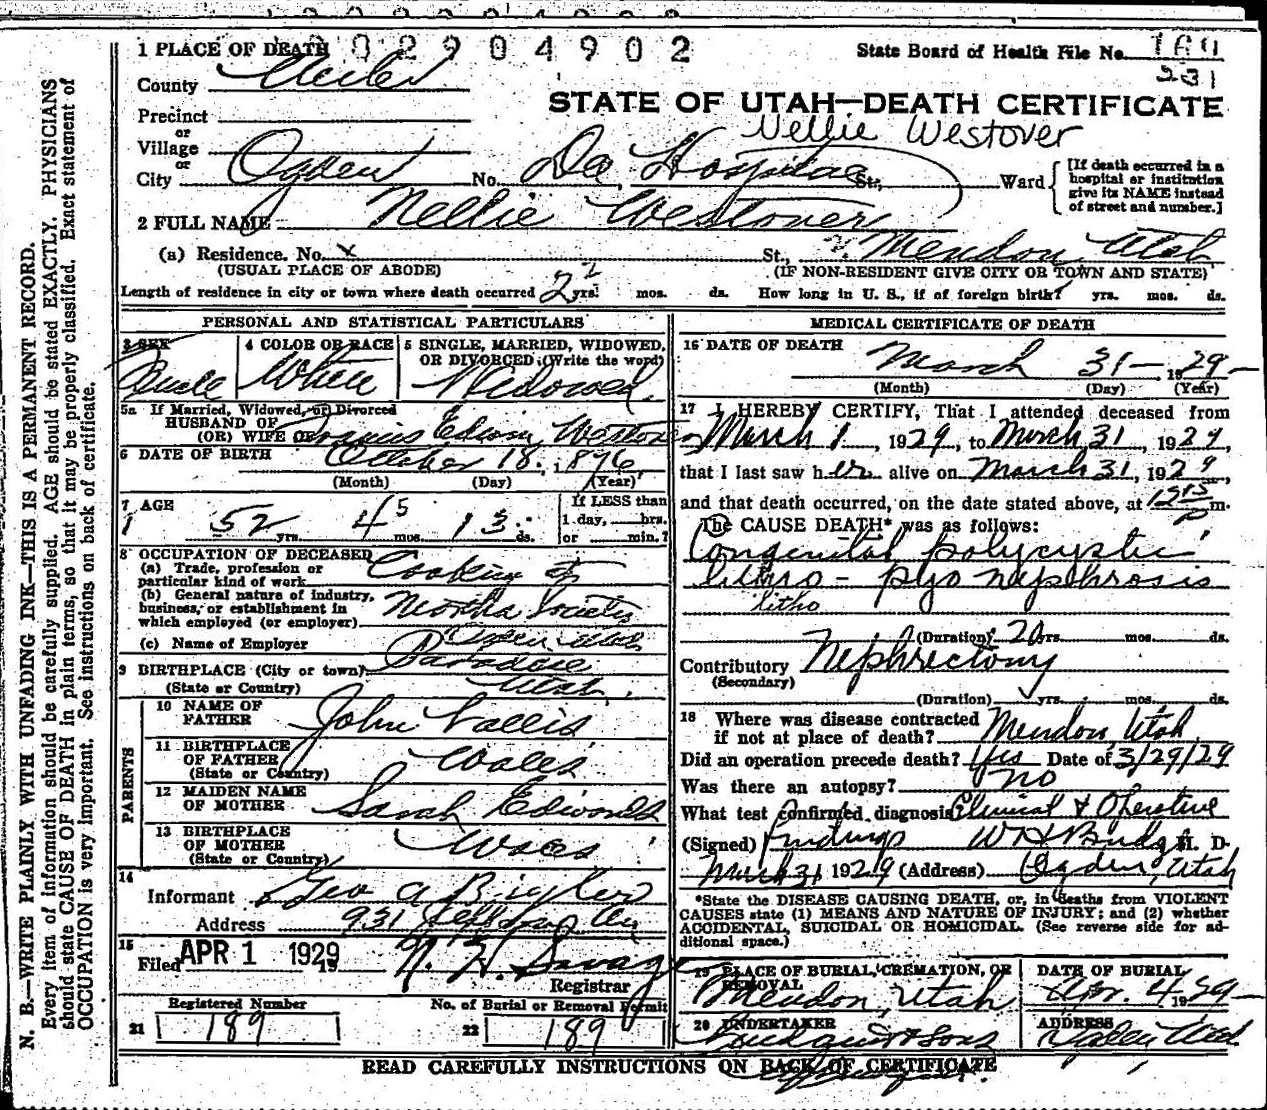 2904902
1 PLACE OF DEATH
State Board of Health File No.
231
County Weber
STATE OF UTAH—DEATH CERTIFICATE
Nellie Westover
Precinct
or
Village
or
City Ogden No. Dee Hospital St., Ward
[If death occurred in a hospital or institution give its NAME instead of street and number.]
2 FULL NAME Nellie Westover
(a) Residence. No. x St., Mendon, Utah
(USUAL PLACE OF ABODE) (IF NON-RESIDENT GIVE CITY OR TOWN AND STATE)
Length of residence in city or town where death occurred 2 yrs. mos. ds. How long in U. S., if of foreign birth? yrs. mos. ds.
PERSONAL AND STATISTICAL PARTICULARS
3 SEX
4 COLOR OR RACE White
5 SINGLE, MARRIED, WIDOWED, OR DIVORCED (Write the word) Widowed.
5a If Married, Widowed, or Divorced
HUSBAND OF
(OR) WIFE OF Edwin Westover
6 DATE OF BIRTH October 18, 1876
(Month) (Day) (Year)
7 AGE
52 yrs. 5 mos. 13 ds.
If LESS than
1 day, hrs.
or min.?
8 OCCUPATION OF DECEASED
(a) Trade, profession or particular kind of work Cooking
(b) General nature of industry, business, or establishment in which employed (or employer)
(c) Name of Employer
9 BIRTHPLACE (City or town) Paradise
(State or Country) Utah
PARENTS
10 NAME OF FATHER John Vallis
11 BIRTHPLACE OF FATHER (State or Country) Wales
12 MAIDEN NAME OF MOTHER Sarah Edwards
13 BIRTHPLACE OF MOTHER (State or Country) Wales
14
Informant Geo A
Address 931 Av
15
Filed APR 1 1929 19
Registrar
Registered Number
21 189
No. of Burial or Removal Permit
22 189
MEDICAL CERTIFICATE OF DEATH
16 DATE OF DEATH
March 31— 1929—
(Month) (Day) (Year)
17 I HEREBY CERTIFY, That I attended deceased from
March 1, 1929, to March 31 1929,
that I last saw her alive on March 31, 1929,
and that death occurred, on the date stated above, at 1215 P m.
The CAUSE DEATH* was as follows:
Congenital polycystic
litho - pyo nephrosis
litho
(Duration) 20 yrs. mos. ds.
Contributory Nephrectomy
(Secondary)
(Duration) yrs. mos. ds.
18 Where was disease contracted
if not at place of death? Mendon, Utah
Did an operation precede death? Yes Date of 3/29/29
Was there an autopsy? no
What test confirmed diagnosis? Clinical & Operative
findings
(Signed) M. D.
March 31 1929 (Address) Ogden, Utah
*State the DISEASE CAUSING DEATH, or, in deaths from VIOLENT
CAUSES state (1) MEANS AND NATURE OF INJURY; and (2) whether
ACCIDENTAL, SUICIDAL OR HOMICIDAL. (See reverse side for ad-
ditional space.)
19 PLACE OF BURIAL, CREMATION, OR REMOVAL
Mendon, Utah
DATE OF BURIAL
Apr. 4 1929—
20 UNDERTAKER
Lindquist & Sons
ADDRESS
Ogden Utah
READ CAREFULLY INSTRUCTIONS ON BACK OF CERTIFICATE
N. B.—WRITE PLAINLY WITH UNFADING INK—THIS IS A PERMANENT RECORD.
Every item of information should be carefully supplied. AGE should be stated EXACTLY. PHYSICIANS
should state CAUSE OF DEATH in plain terms, so that it may be properly classified. Exact statement of
OCCUPATION is very important. See instructions on back of certificate.